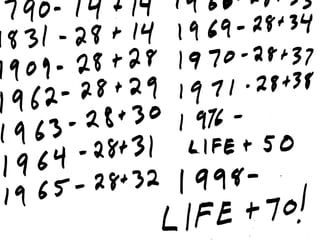 1790- 14 + 14
1831 - 28 + 14
1909- 28 + 28
1962- 28 + 29
1963- 28 + 30
1964 - 28+31
1965 - 28+32
1969-28+34
1970 -28+37
1971 - 28+38
1976 -
LIFE + 50
1998-
LIFE +70!